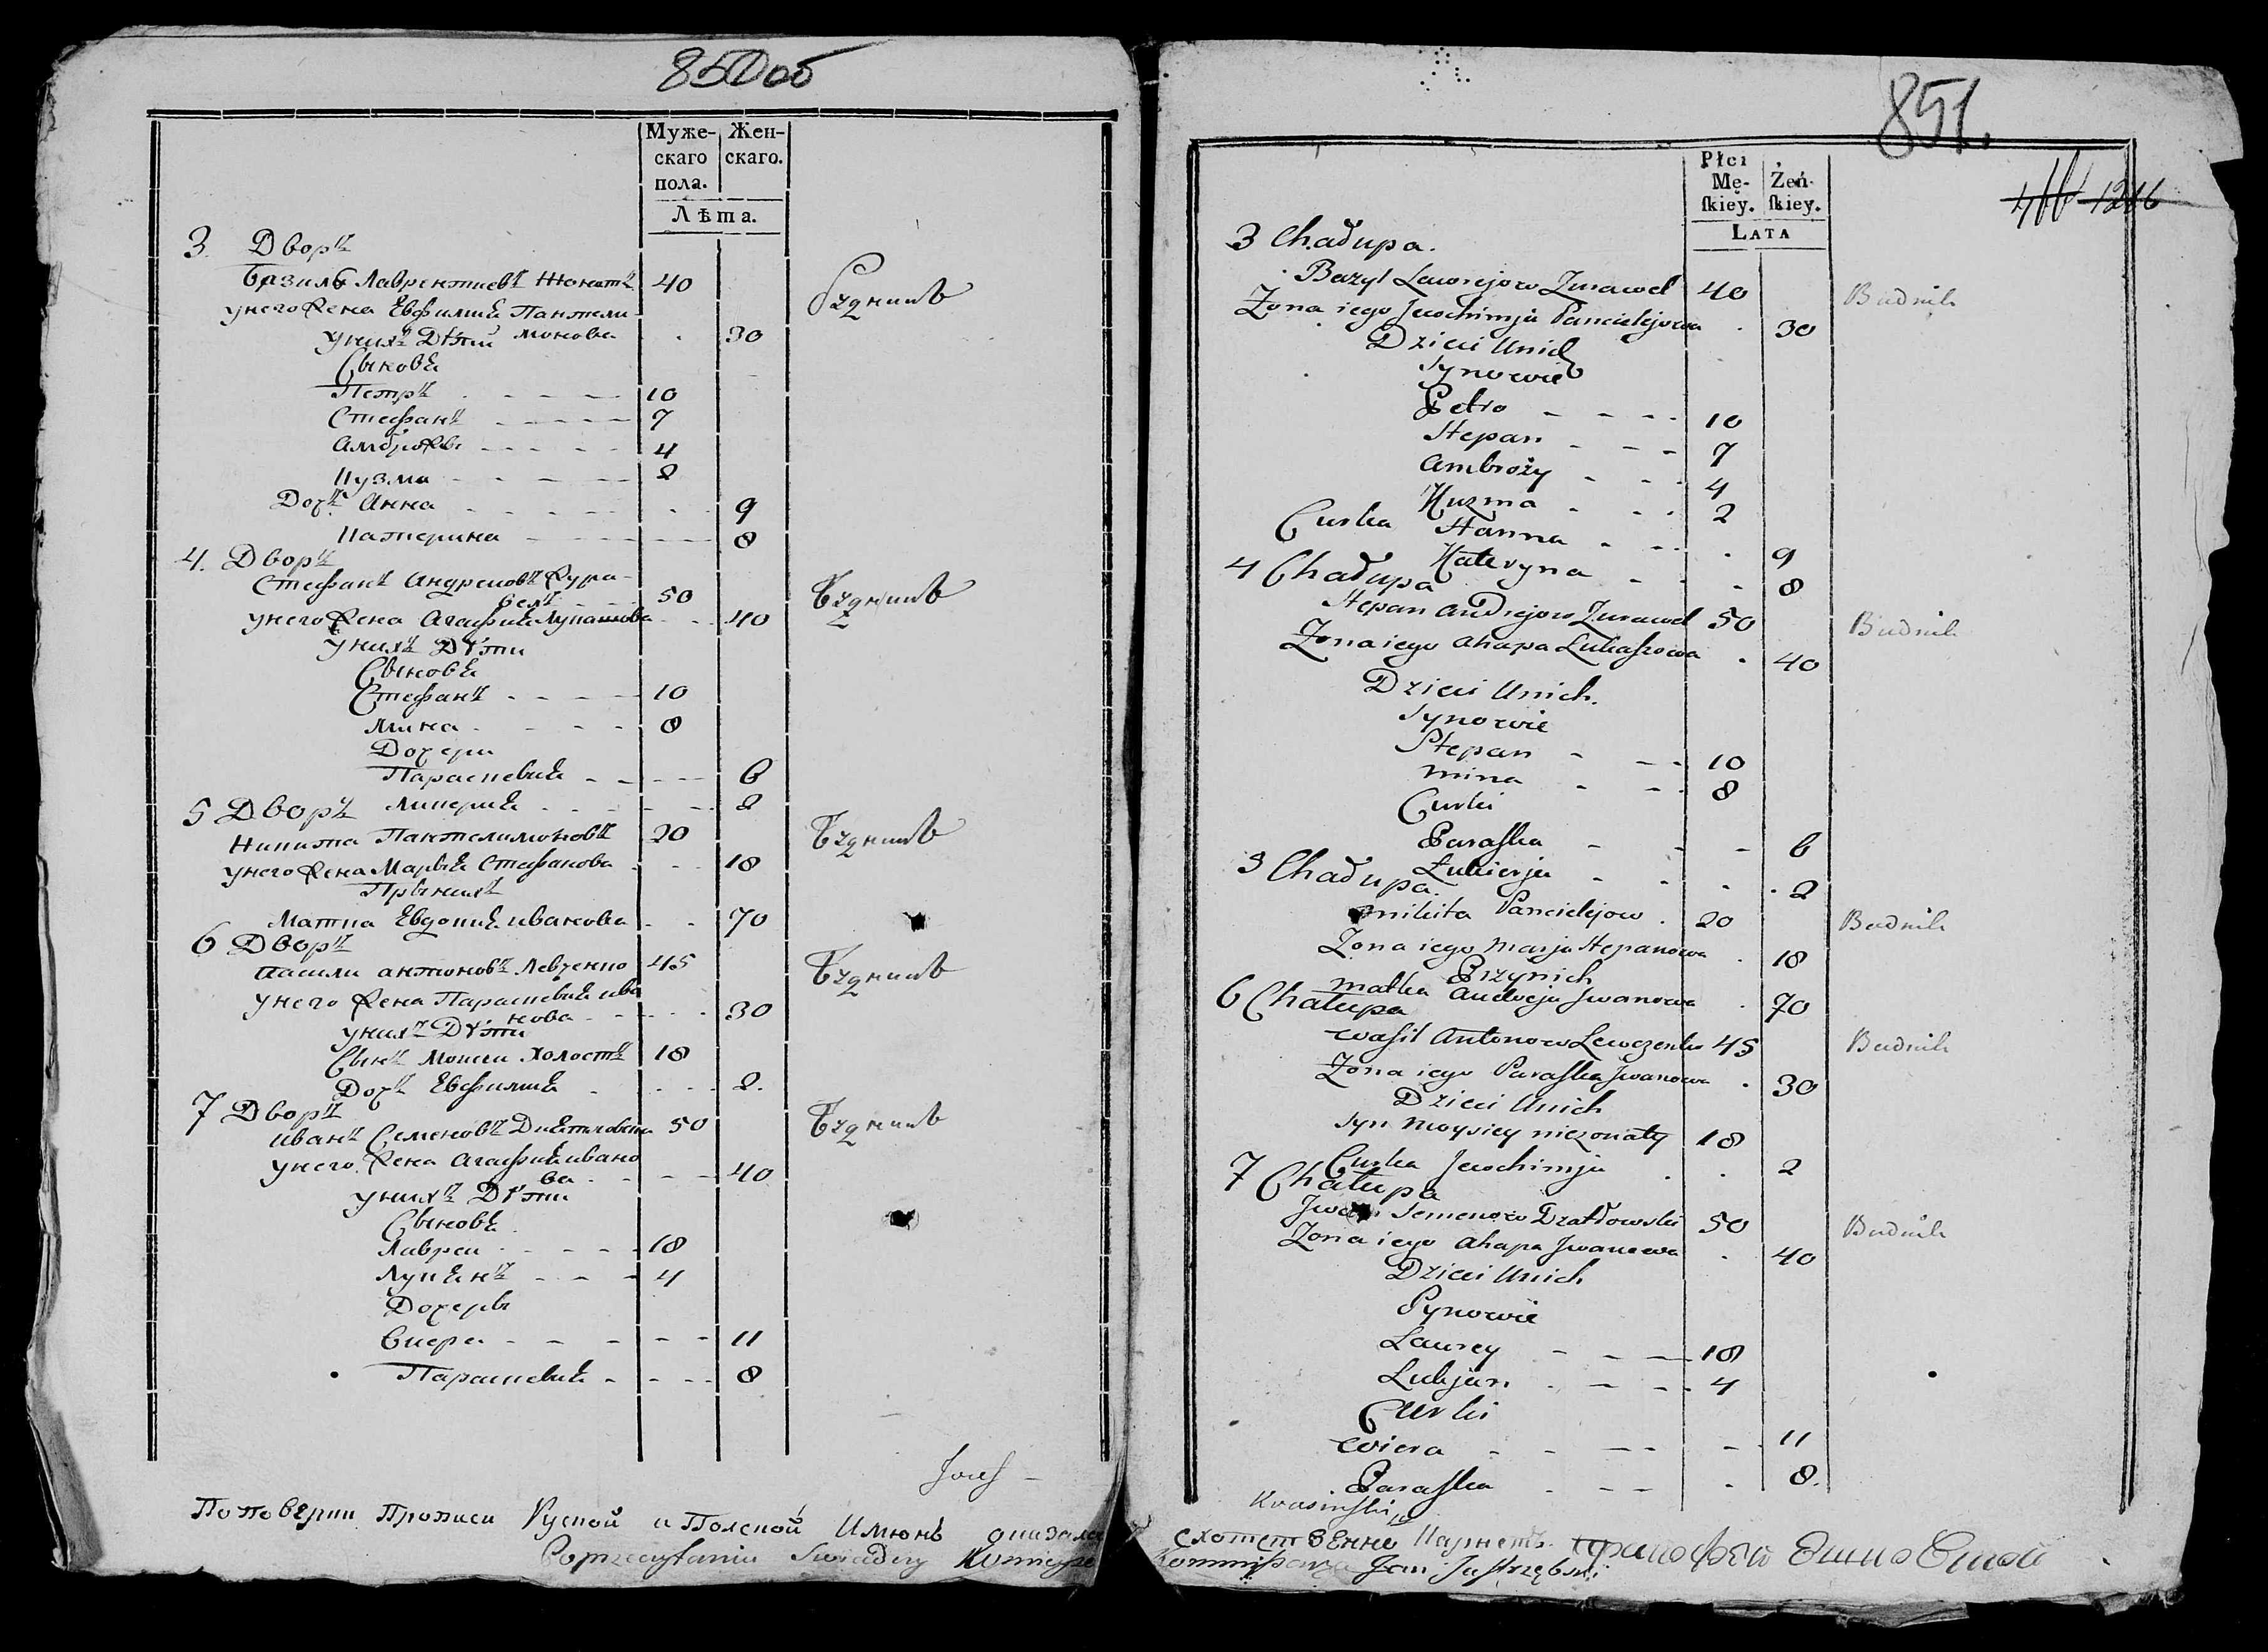 850об
Муже- Жен-
скаго скаго.
пола.
Лѣта.
3. Дворъ
Базиль Лаврентиевъ Жонатъ 40
унего жена Евфимия Пантели
монова 30
унихъ Дѣти
Сыновя
Петръ 10
Стефанъ 7
Амброжы 4
Кузма 2
Дочъ Анна 9
Катерина 8
4. Дворъ
Стефанъ Андреиовъ Жура-
вель 50 Будникъ
унего жена Агафия Лукашова 40
унихъ Дѣти
Сыновя
Стефанъ 10
Мина 8
Дочери
Параскевия 6
Ликерия 2
5 Дворъ
Никита Пантелимоновъ 20 Будникъ
унего жена Марья Стефанова 18
Прыних
Матка Евдокия Иванова 70
6 Дворъ
Василь Антоновъ Левченко 45 Будникъ
унего жена Параскевия Ива
нова 30
унихъ Дѣти
Сынъ Моисеи Холостъ 18
Дочъ Евфимия 2.
7 Дворъ
Иванъ Семеновъ 50 Будникъ
унего жена Агафия Ивано
ва 40
унихъ Дѣти
Сыновя
Лавреи 18
Лукянъ 4
Дочеры
Виера 11
Параскевия 8
Jozef
По поверки Прописи Руской и Полской
Poprzeczytaniu Swiadczy
851.
1216
Płci
Mę- Żeń-
skiey. skiey.
LATA
3 Chałupa.
Bazyl Lawrejow Zurawel 40 Budnik
Zona iego Jewchimja Pancielejowa 30
Dzieci Unich
Synowie
Petro 10
Stepan 7
Ambroży 4
Kuzma 2
Curka Hanna 9
Kateryna 8
4 Chałupa
Stepan Andrejow Zurawel 50 Budnik
Zona iego Ahapa Lukaszowa 40
Dzieci Unich.
Synowie
Stepan 10
Mina 8
Curki
Paraska 6
Łukierja 2
5 Chałupa.
Mikita Pancielejow 20 Budnik
Zona iego Marja Stepanowa 18
Przynich
Matka Audocja Jwanowa 70
6 Chałupa
Wasil Antonow Lewczenko 45 Budnik
Zona iego Paraska Jwanowa 30
Dzieci Unich
Syn Moysiey niezonaty 18
Curka Jewchimja 2
7 Chałupa
Jwan Semenow Dzatłowski 50 Budnik
Zona iego Ahapa Jwanowa 40
Dzieci Unich
Synowie
Laurey 18
Lukjan 4
Curki
Wiera 11
Paraska 8.
Krasinski
Kommissarza Jan Jastrzębski